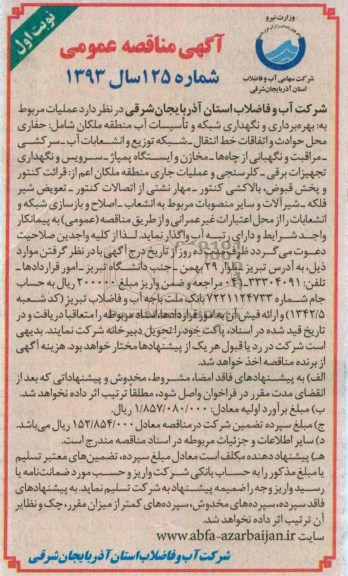 نوبت اول
وزارت نیرو
شرکت سهامی آب و فاضلاب
استان آذربایجان‌شرقی
آگهی مناقصه عمومی
شماره ۱۲۵ سال ۱۳۹۳
شرکت آب و فاضلاب استان آذربایجان‌شرقی در نظر دارد عملیات مربوط
به: بهره‌برداری و نگهداری شبکه و تأسیسات آب منطقه ملکان شامل: حفاری
محل حوادث و اتفاقات خط انتقال ـ شبکه توزیع و انشعابات آب ـ سرکشی
ـ مراقبت و نگهبانی از چاه‌ها ـ مخازن و ایستگاه پمپاژ ـ سرویس و نگهداری
تجهیزات برقی ـ کلرسنجی و عملیات جاری منطقه ملکان اعم از: قرائت کنتور
و پخش قبوض، بالاکشی کنتور ـ مهار نشتی از اتصالات کنتور ـ تعویض شیر
فلکه ـ شیرآلات و سایر منصوبات مربوط به انشعاب ـ اصلاح و بازسازی شبکه و
انشعابات را از محل اعتبارات غیرعمرانی و از طریق مناقصه (عمومی) به پیمانکار
واجد شرایط و دارای رتبه آب واگذار نماید. لذا از کلیه واجدین صلاحیت
دعوت می‌گردد ظرف مدت ده روز از تاریخ درج آگهی با در نظر گرفتن موارد
ذیل، به آدرس تبریز بلوار ۲۹ بهمن ـ جنب دانشگاه تبریز ـ امور قراردادها ـ
تلفن: ۳۳۳۰۴۰۹۱-۰۴۱ مراجعه و ضمن واریز مبلغ ۲۰۰۰۰۰ ریال به حساب
جام شماره ۷۲۲۱۱۲۴۷۳۳ بانک ملت باجه آب و فاضلاب تبریز (کد شعبه
۱۳۴۲/۵) و ارائه فیش آن به امور قراردادها، اسناد مربوطه را متعاقبا دریافت و در
تاریخ قید شده در اسناد، پاکت خود را تحویل دبیرخانه شرکت نمایند. بدیهی
است شرکت در رد یا قبول هر یک از پیشنهادها مختار خواهد بود. هزینه آگهی
از برنده مناقصه اخذ خواهد شد.
الف) به پیشنهادهای فاقد امضا، مشروط، مخدوش و پیشنهاداتی که بعد از
انقضای مدت مقرر در فراخوان واصل شود، مطلقا ترتیب اثر داده نخواهد شد.
ب) مبلغ برآورد اولیه معادل: ۱/۸۵۷/۰۸۰/۰۰۰ ریال.
ج) مبلغ سپرده تضمین شرکت در مناقصه معادل ۱۵۲/۸۵۴/۰۰۰ ریال می‌باشد.
د) سایر اطلاعات و جزئیات مربوطه در اسناد مناقصه مندرج است.
هـ) پیشنهاد دهنده مکلف است معادل مبلغ سپرده، تضمین‌های معتبر تسلیم
یا مبلغ مذکور را به حساب بانکی شرکت واریز و حسب مورد ضمانت‌نامه یا
رسید واریز وجه را ضمیمه پیشنهاد به شرکت تسلیم نماید. به پیشنهادهای
فاقد سپرده، سپرده‌های مخدوش، سپرده‌های کمتر از میزان مقرر، چک و نظایر
آن ترتیب اثر داده نخواهد شد.
سایت www.abfa-azarbaijan.ir
شرکت آب و فاضلاب استان آذربایجان شرقی